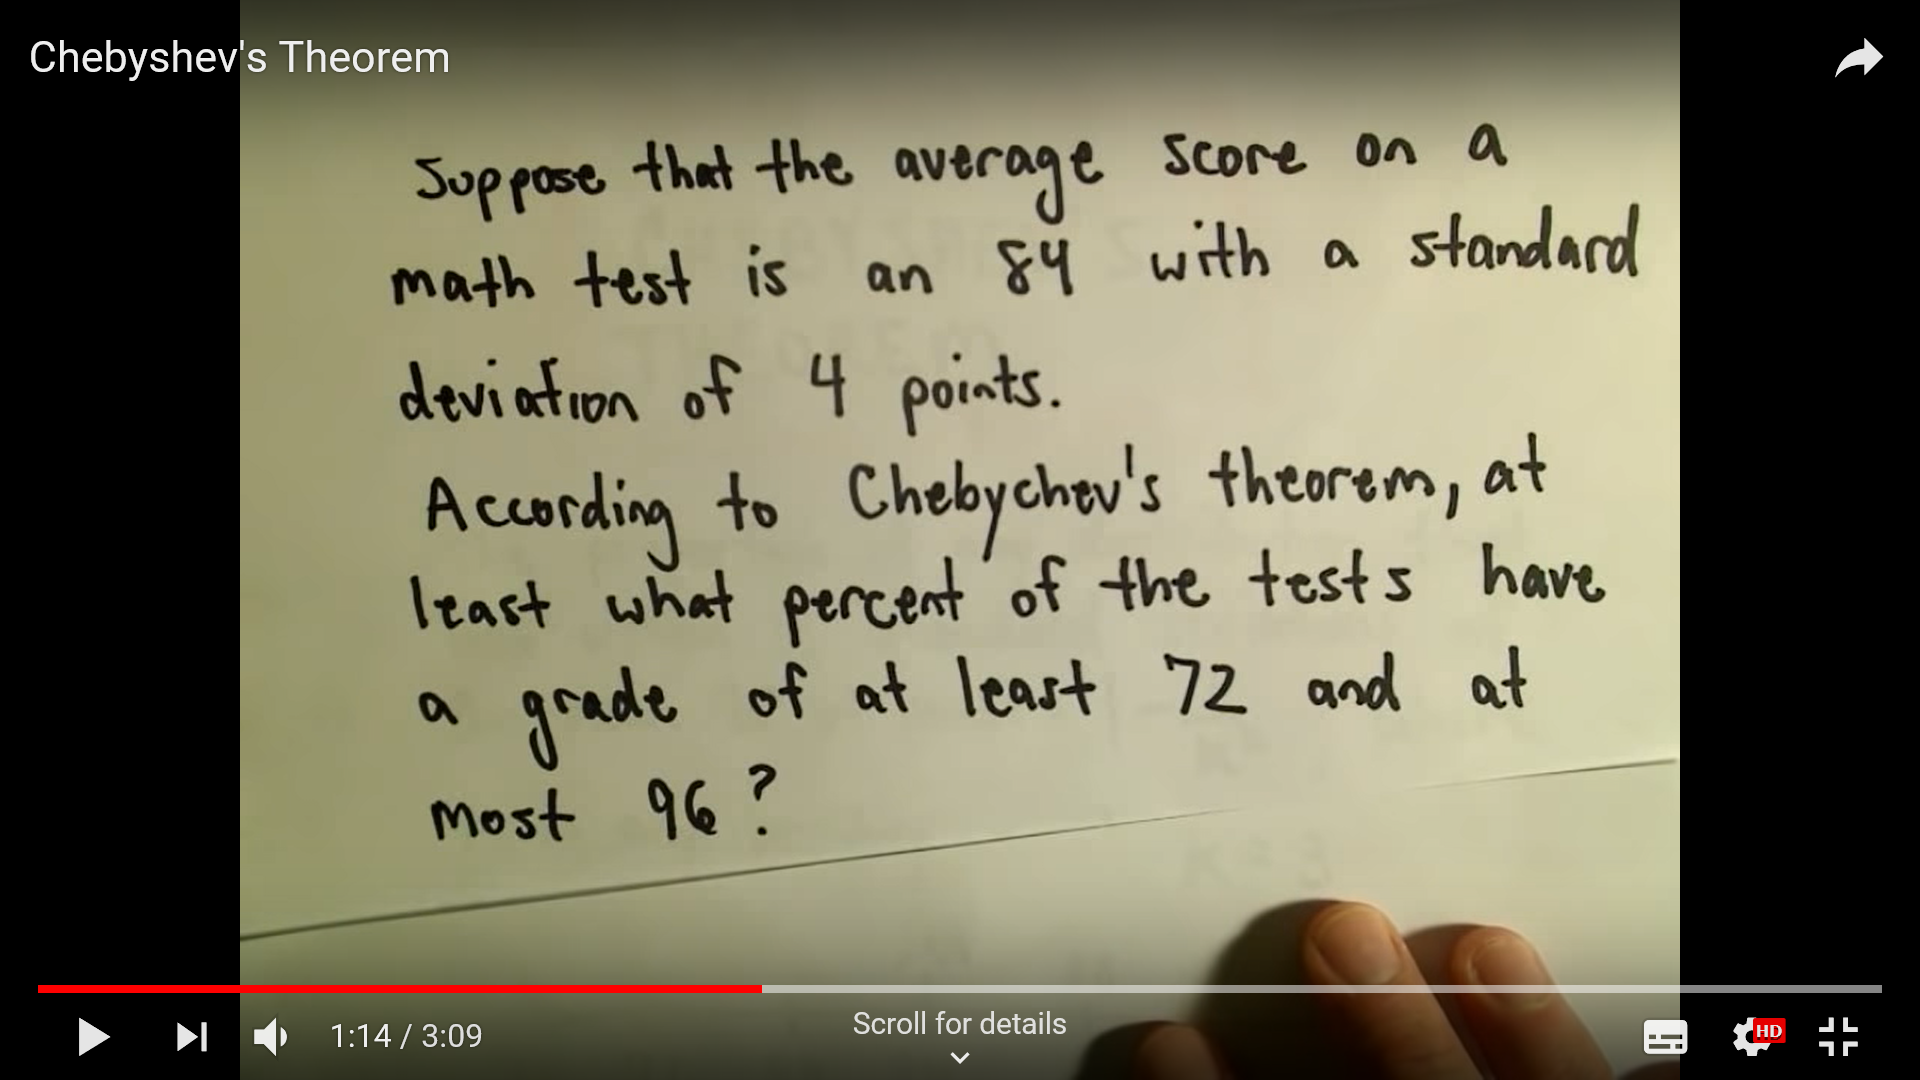 Chebyshev's Theorem
Suppose that the average score on a
math test is an 84 with a standard
deviation of 4 points.
According to Chebychev's theorem, at
least what percent of the tests have
a grade of at least 72 and at
most 96?
K = 3
1:14 / 3:09
Scroll for details
HD